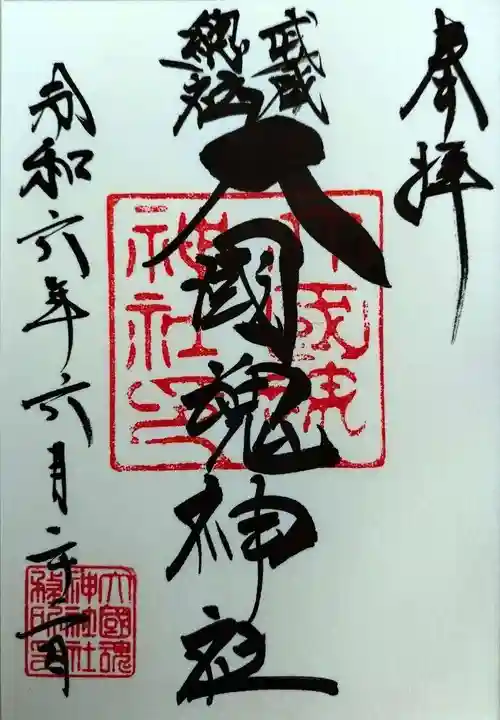 奉拝
武蔵
總社
大國魂神社
令和六年六月二十一日
大國魂
神社印
大國魂
神社社
務所印